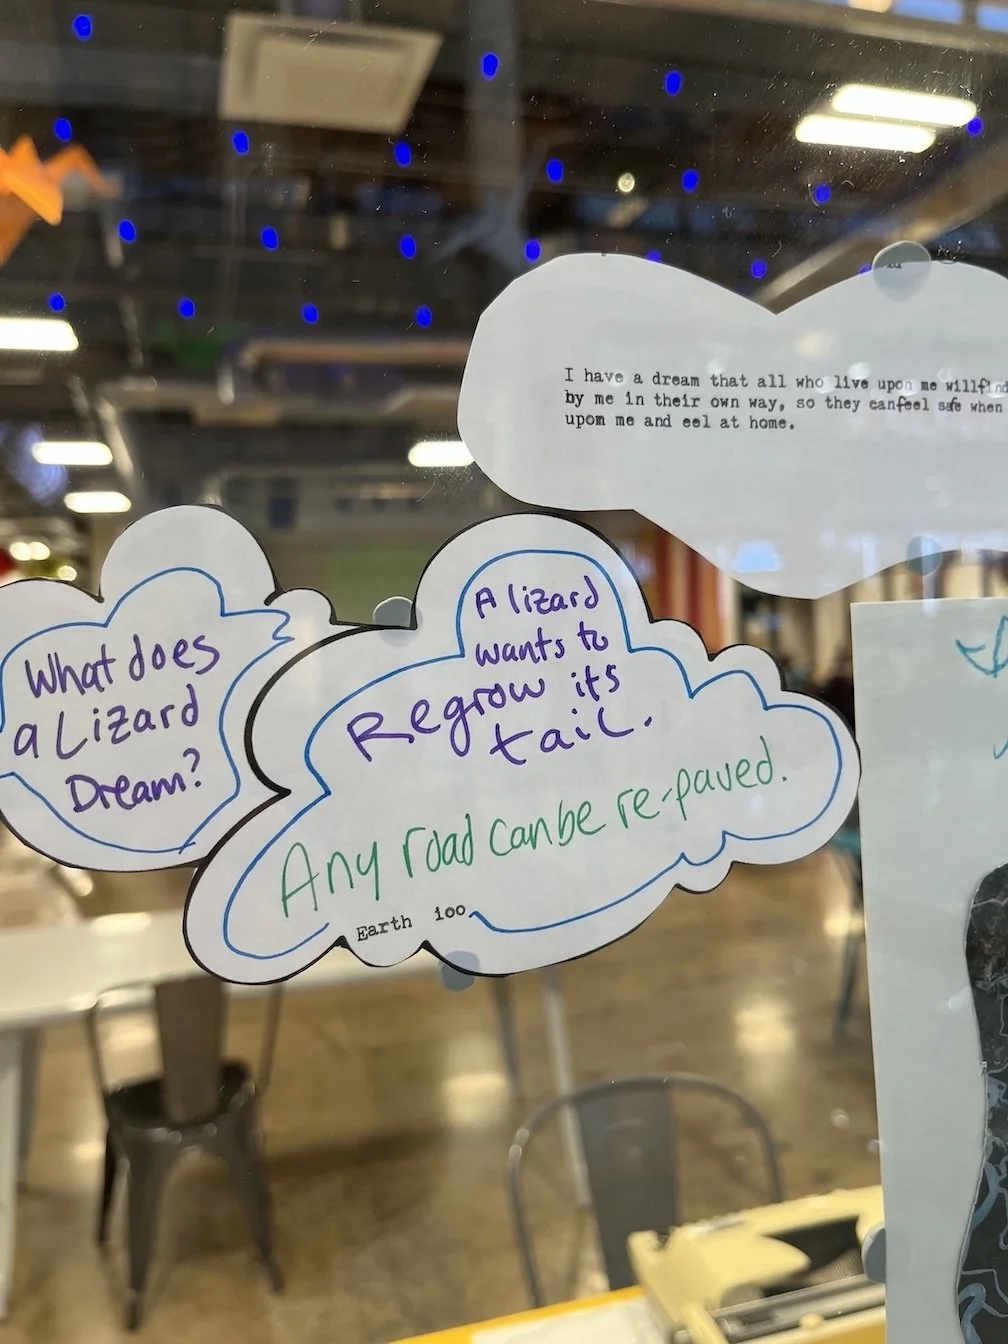 I have a dream that all who live upon me willfind
by me in their own way, so they canfeel safe when
upom me and eel at home.
What does
a Lizard
Dream?
A lizard
wants to
Regrow its
tail.
Any road can be re-paved.
Earth ioo